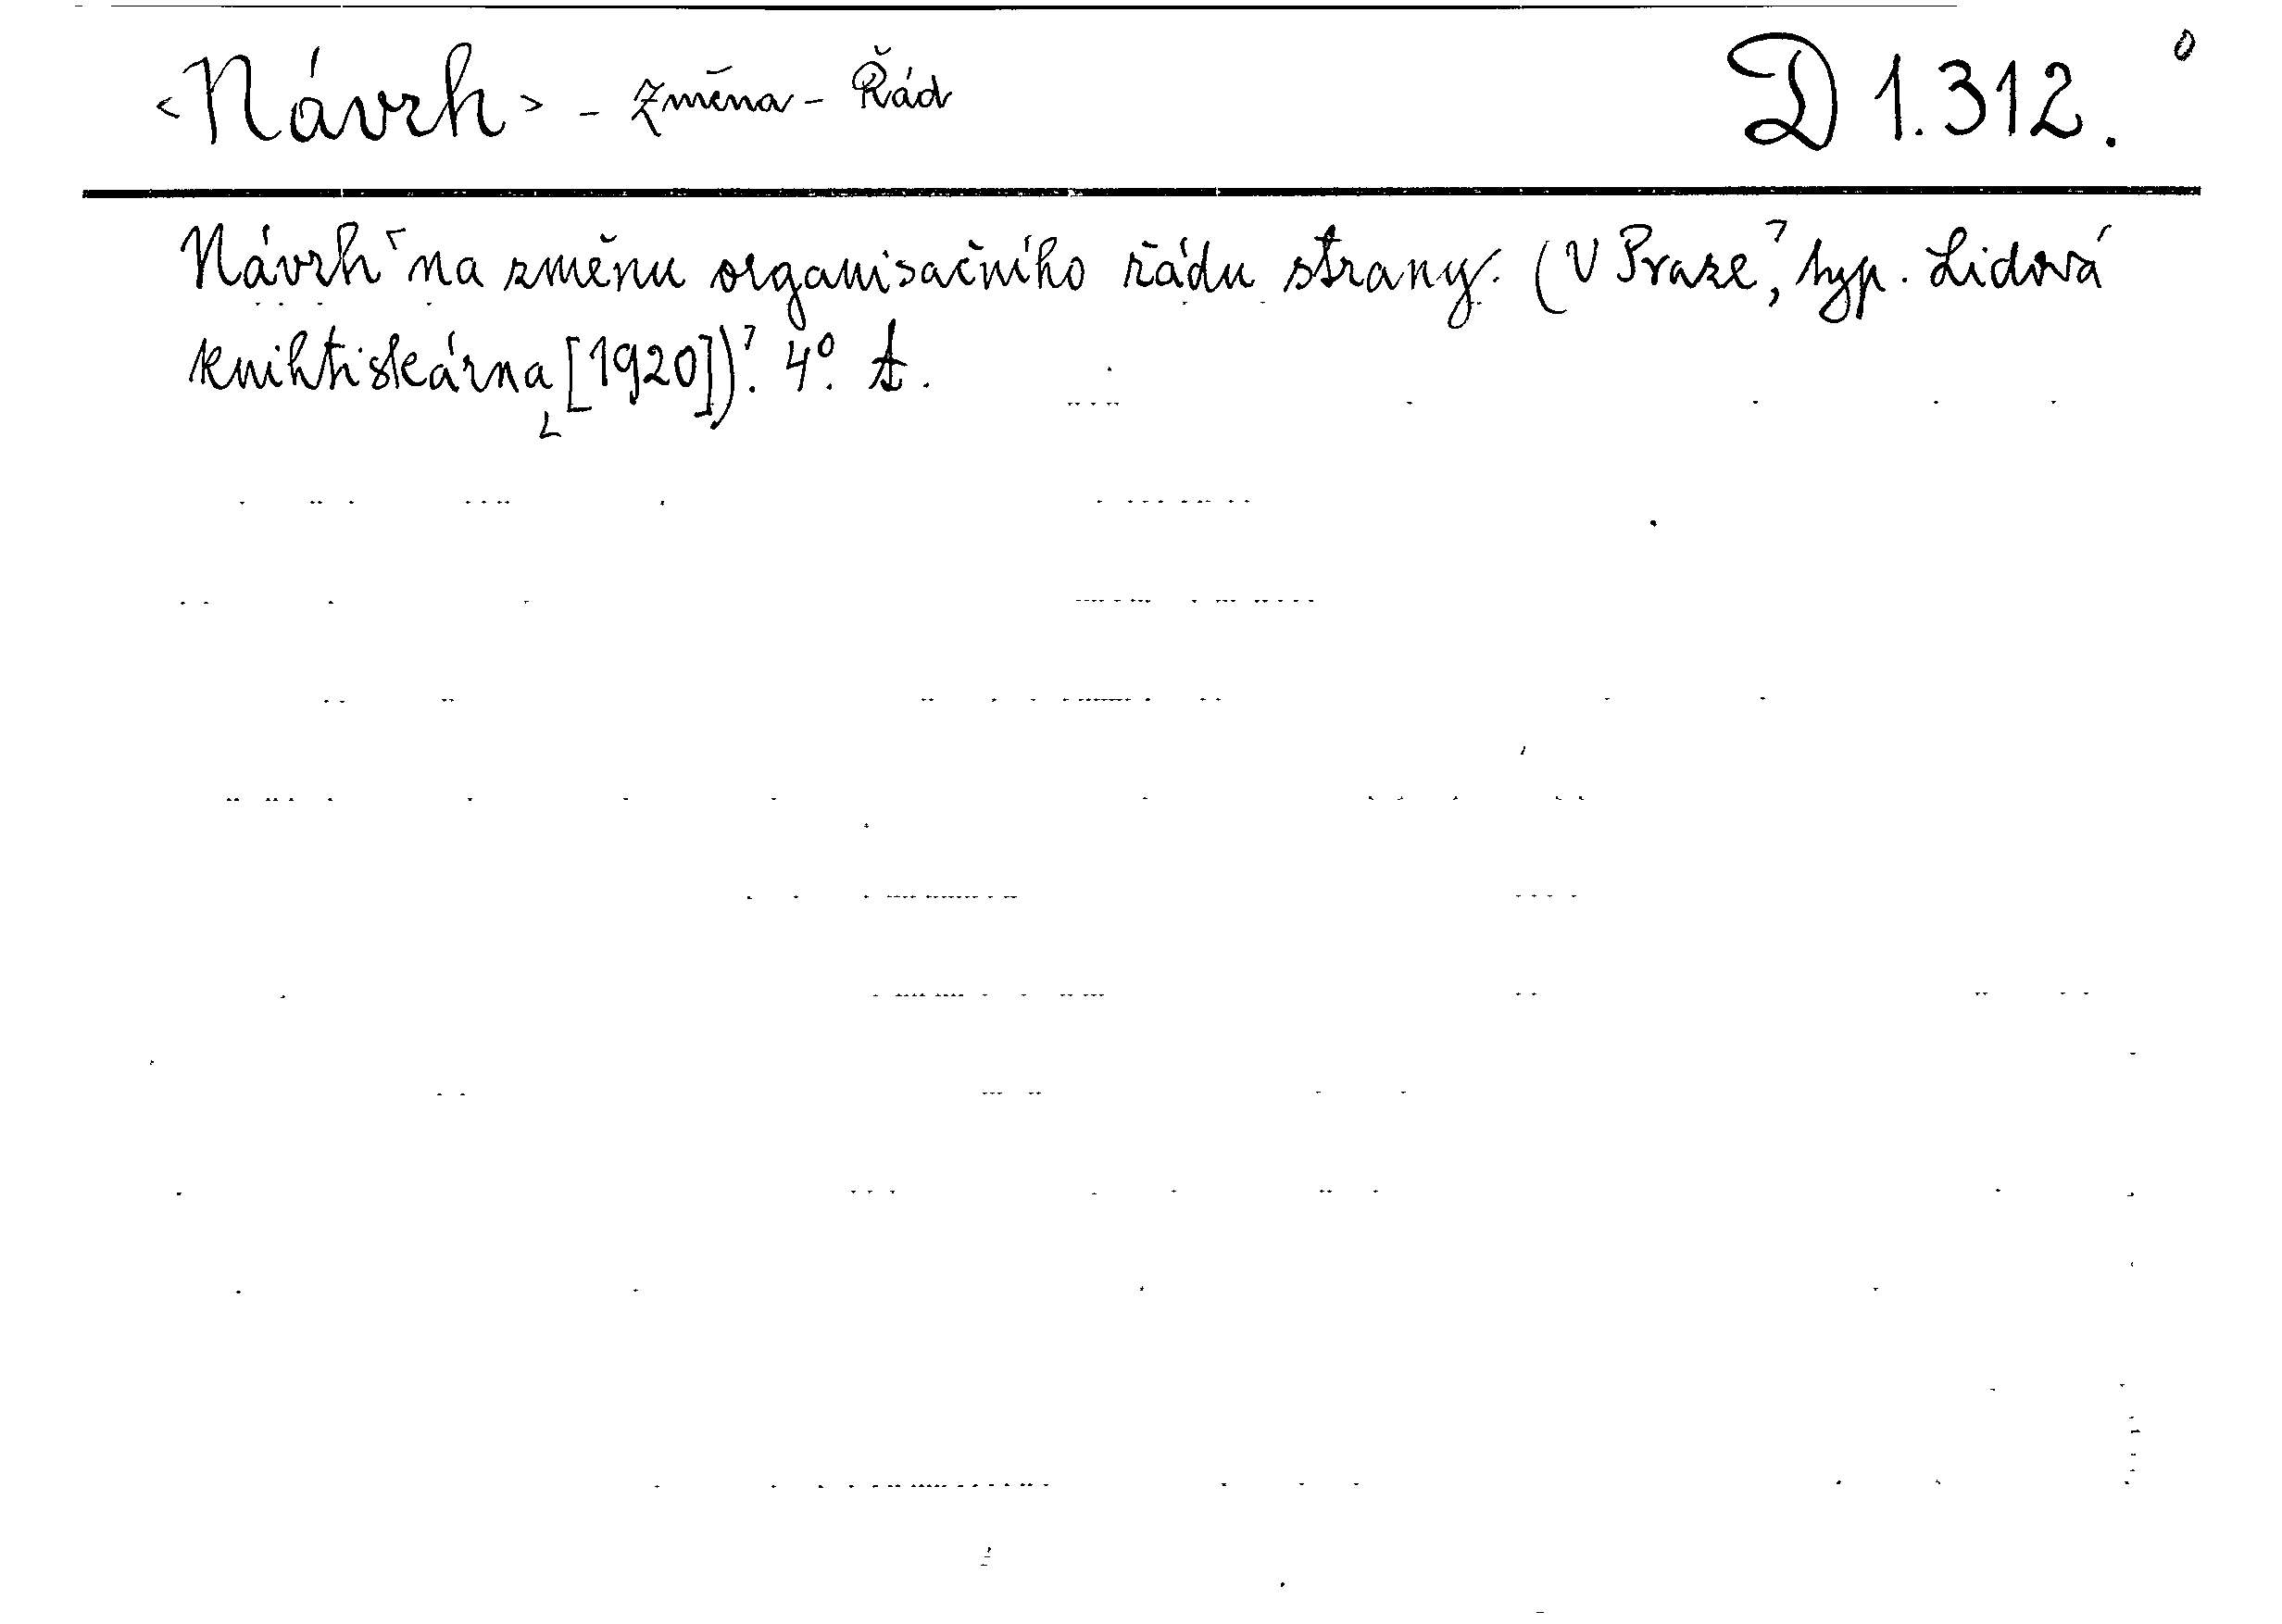 <Návrh> - Změna - Řád D 1.312.
Návrh na změnu organisačního řádu strany. (V Praze, typ. Lidová
knihtiskárna, [1920]). 4°. A.